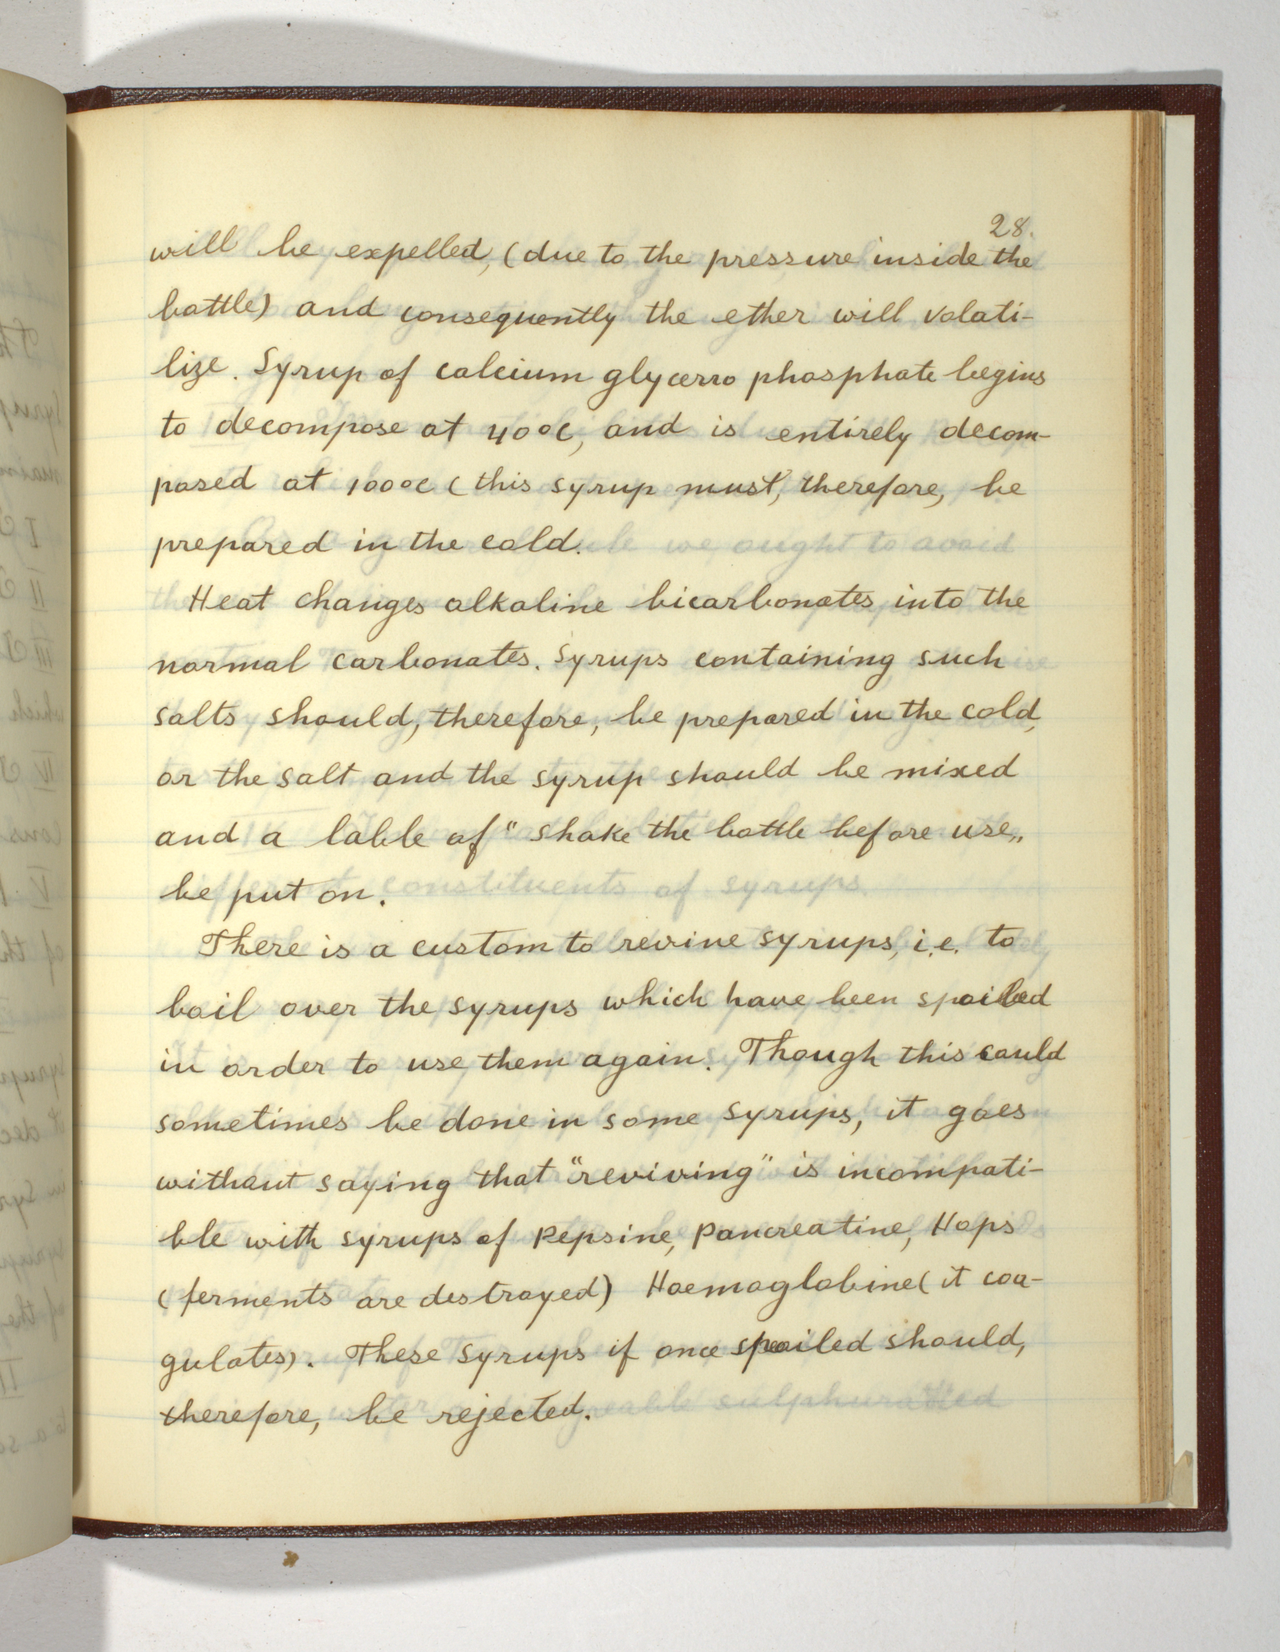 28.
will be expelled, (due to the pressure inside the
bottle) and consequently the ether will volati-
lize. Syrup of calcium glycerro phosphate begins
to decompose at 40°C, and is entirely decom-
posed at 100°C (this syrup must, therefore, be
prepared in the cold.
Heat changes alkaline bicarbonates into the
normal carbonates. Syrups containing such
salts should, therefore, be prepared in the cold,
or the salt and the syrup should be mixed
and a lable of "shake the bottle before use„
be put on.
There is a custom to revive syrups, i.e. to
boil over the syrups which have been spoiled
in order to use them again. Though this could
sometimes be done in some syrups, it goes
without saying that "reviving" is incompati-
ble with syrups of Pepsine, Pancreatine, Hops
(ferments are destroyed) Haemoglobine (it coa-
gulates). These syrups if once spoiled should,
therefore, be rejected.